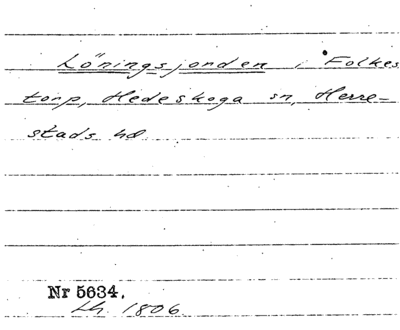 Löningsjorden i Folkes
torp, Hedeskoga sn, Herre-
stads hd
Nr 5634.
Lh. 1806